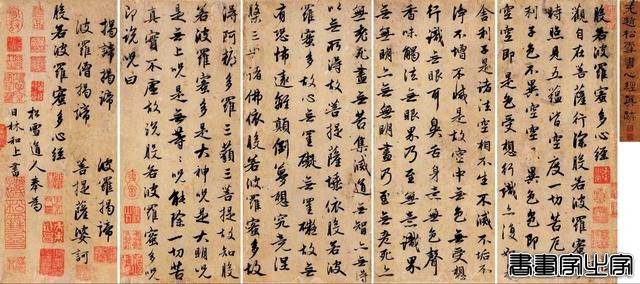 元趙松雪書心經真跡
般若波羅蜜多心經
觀自在菩薩行深般若波羅蜜多
時照見五蘊皆空度一切苦厄舍
利子色不異空空不異色色即是
空空即是色受想行識亦復如是
舍利子是諸法空相不生不滅不垢不
淨不增不減是故空中無色無受想
行識無眼耳鼻舌身意無色聲
香味觸法無眼界乃至無意識界
無無明亦無無明盡乃至無老死亦
無老死盡無苦集滅道無智亦無得
以無所得故菩提薩埵依般若波
羅蜜多故心無罣礙無罣礙故無
有恐怖遠離顛倒夢想究竟涅
槃三世諸佛依般若波羅蜜多故
得阿耨多羅三藐三菩提故知般
若波羅蜜多是大神咒是大明咒
是無上咒是無等等咒能除一切苦
真實不虛故說般若波羅蜜多咒
即說咒曰
揭諦揭諦 波羅揭諦
波羅僧揭諦 菩提薩婆訶
般若波羅蜜多心經
松雪道人奉為
日林和上書
書畫家出字